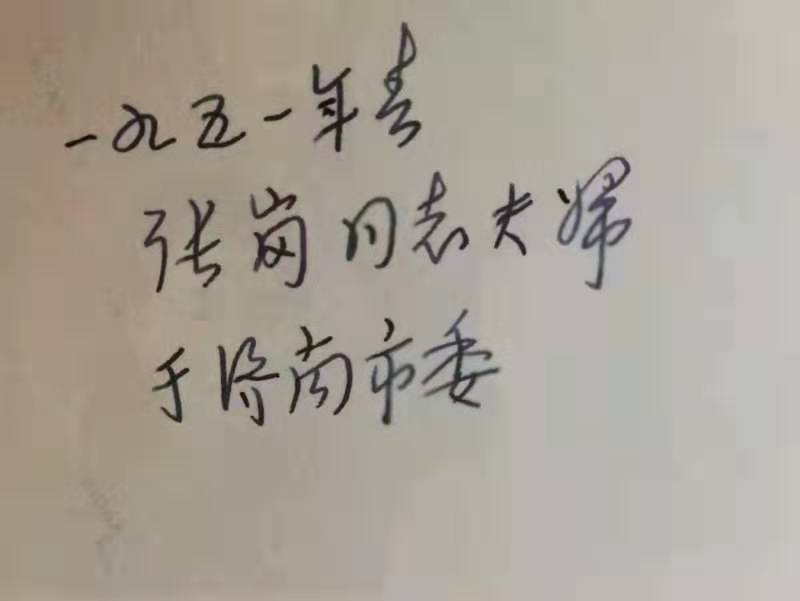 一九五一年春
张岗同志夫婦
于济南市委